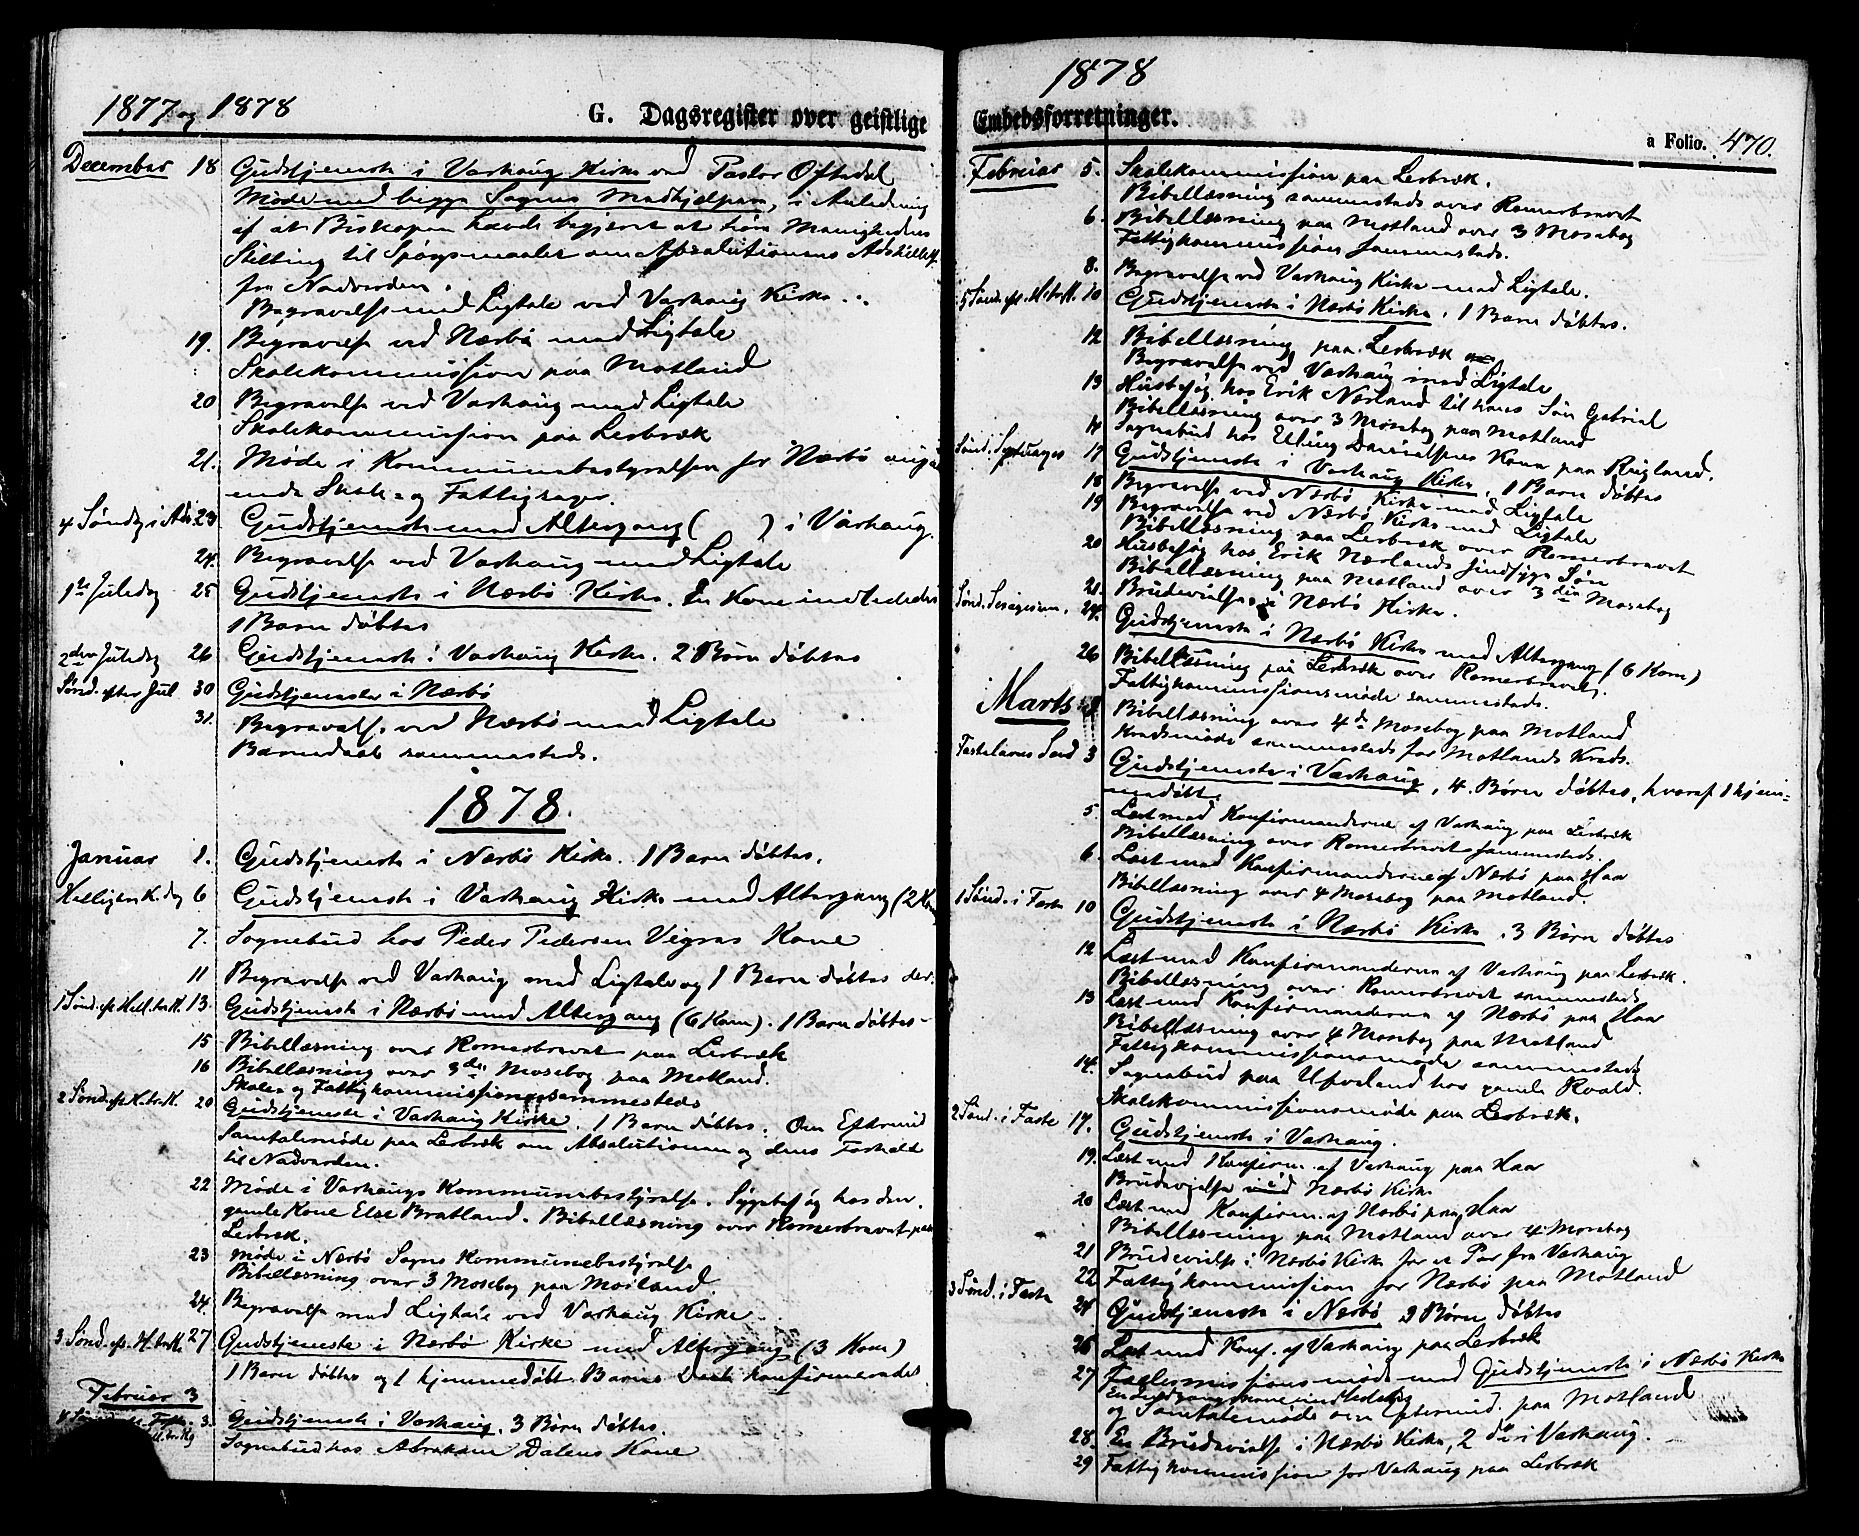 1877 og 1878
G. Dagsregister over geistlige
December 18 Gudstjeneste i Varhaug Kirke ved Pastor Oftedal
Møde med begge Sognes Medhjelpere, i Anledning
af at Biskopen havde begjeret at høre Menighedens
Stilling til Spørgsmaalet om Absolutionens Adskillelse
fra Nadverden.
Begravelse med Ligtale ved Varhaug Kirke.
19. Begravelse ved Nærbø med Ligtale
Skolekommission paa Motland
20 Begravelse ved Varhaug med Ligtale
Skolekommission paa Lerbræk
21. Møde i Kommunebestyrelsen for Nærbø angaa-
ende Skole- og Fattigsager.
4 Søndg i Adv 23 Gudstjeneste med Altergang ( ) i Varhaug.
24. Begravelse ved Varhaug med Ligtale
1ste Juledag 25 Gudstjeneste i Nærbø Kirke. En Kone indlededes
1 Barn døbtes
2den Juledag 26 Gudstjeneste i Varhaug Kirke. 2 Børn døbtes
Sønd. efter Jul 30 Gudstjeneste i Nærbø
31. Begravelse ved Nærbø med Ligtale
Barnedaab sammesteds.
1878.
Januar 1. Gudstjeneste i Nærbø Kirke. 1 Barn døbtes.
Helligtr. K. dg 6 Gudstjeneste i Varhaug Kirke med Altergang (2 Kom
7. Sognebud hos Peder Pedersen Vigres Kone
11 Begravelse ved Varhaug med Ligtale og 1 Barn døbtes der.
1 Sønd. ef. Hell. tr. K. 13. Gudstjeneste i Nærbø med Altergang (6 Kom). 1 Barn døbtes
15 Bibellæsning over Romerbrevet paa Lerbræk
16 Bibellæsning over 3die Mosebog paa Motland.
Skole- og Fattigkommission sammesteds
2 Sønd. ef. H. tr. K. 20 Gudstjeneste i Varhaug Kirke. 1 Barn døbtes. Om Eftermid
Samtalemøde paa Lerbræk om Absolutionen og dens Forhold
til Nadverden.
22 Møde i Varhaugs Kommunebestyrelse. Sygebesøg hos den
gamle Kone Else Bratland. Bibellæsning over Romerbrevet paa
Lerbræk.
23 Møde i Nærbø Sogns Kommunebestyrelse
Bibellæsning over 3 Mosebog paa Motland.
24. Begravelse med Ligtale ved Varhaug Kirke
3 Sønd. ef. H. tr. K. 27 Gudstjeneste i Nærbø Kirke med Altergang (3 Kom)
1 Barn døbtes og 1 hjemmedøbt Barns Daab konfirmeredes
Februar 3
3. Gudstjeneste i Varhaug. 3 Børn døbtes.
Sognebud hos Abraham Dalens Kone
1878
Embedsforretninger.
a Folio. 470.
Februar 5. Skolekommission paa Lerbræk.
Bibellæsning sammesteds over Romerbrevet
6. Bibellæsning paa Motland over 3 Mosebog
Fattigkommission sammesteds.
8. Begravelse ved Varhaug Kirke med Ligtale.
5 Sønd. ef. H. tr. K. 10 Gudstjeneste i Nærbø Kirke. 1 Barn døbtes.
12 Bibellæsning paa Lerbræk
Begravelse ved Varhaug med Ligtale
13 Husbesøg hos Erik Nærland til hans Søn Gabriel
Bibellæsning over 3 Mosebog paa Motland
14 Sognebud hos Elling Danielsens Kone paa Rugland.
Sønd. Septuages 17 Gudstjeneste i Varhaug Kirke. 1 Barn døbtes
18 Begravelse ved Nærbø Kirke med Ligtale
19 Begravelse ved Nærbø Kirke med Ligtale
Bibellæsning paa Lerbræk over Romerbrevet
20 Husbesøg hos Erik Nærlands sindsyge Søn
Bibellæsning paa Motland over 3die Mosebog
21. Brudevielse i Nærbø Kirke.
Sønd. Sexagesim. 24. Gudstjeneste i Nærbø Kirke med Altergang (6 Kom)
26 Bibellæsning paa Lerbræk over Romerbrevet.
Fattigkommissionsmøde sammesteds.
Marts Bibellæsning over 4de Mosebog paa Motland
Kredsmøde sammesteds for Motlands Kreds.
Fastelavns Sønd 3 Gudstjeneste i Varhaug. 4 Børn døbtes, hvoraf 1 hjem-
medøbt.
5. Læst med Konfirmanderne af Varhaug paa Lerbræk
Bibellæsning over Romerbrevet sammesteds.
6. Læst med Konfirmanderne af Nærbø paa Haar
Bibellæsning over 4 Mosebog paa Motland.
1 Sønd. i Faste 10 Gudstjeneste i Nærbø Kirke. 3 Børn døbtes
12 Læst med Konfirmanderne af Varhaug paa Lerbræk.
Bibellæsning over Romerbrevet sammesteds
13 Læst med Konfirmanderne af Nærbø paa Haar
Bibellæsning over 4 Mosebog paa Motland
Fattigkommissionsmøde sammesteds
14. Sognebud paa Upseland hos gamle Roald.
Skolekommissionsmøde paa Lerbræk.
2 Sønd. i Faste 17. Gudstjeneste i Varhaug.
19. Læst med Konfirm. af Varhaug paa Haar
Brudevielse ved Nærbø Kirke
20 Læst med Konfirm. af Nærbø paa Haar
Bibellæsning paa Motland over 4 Mosebog
21 Brudevielse i Nærbø Kirke for et Par fra Varhaug
22 Fattigkommission for Nærbø paa Motland
3 Sønd. i Faste 24 Gudstjeneste i Nærbø 2 Børn døbtes
26 Læst med Konf. af Varhaug paa Lerbræk
27 Fællesmissionsmøde med Gudstjeneste i Nærbø Kirke
og Samtalemøde om Eftermid. paa Motland
28. En Brudevielse i Nærbø Kirke, 2 do i Varhaug.
29 Fattigkommission for Varhaug paa Lerbræk